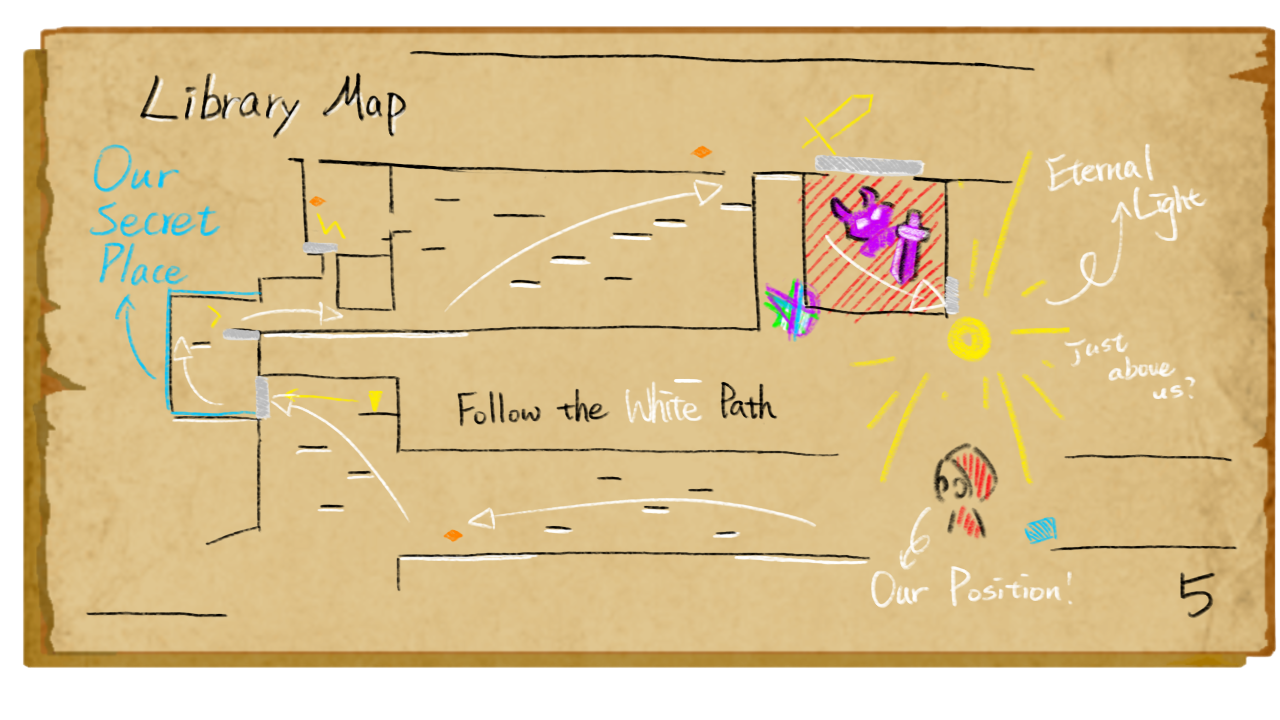 Library Map
Our
Secret
Place
Eternal
Light
Just
above
us?
Follow the White Path
Our Position!
5